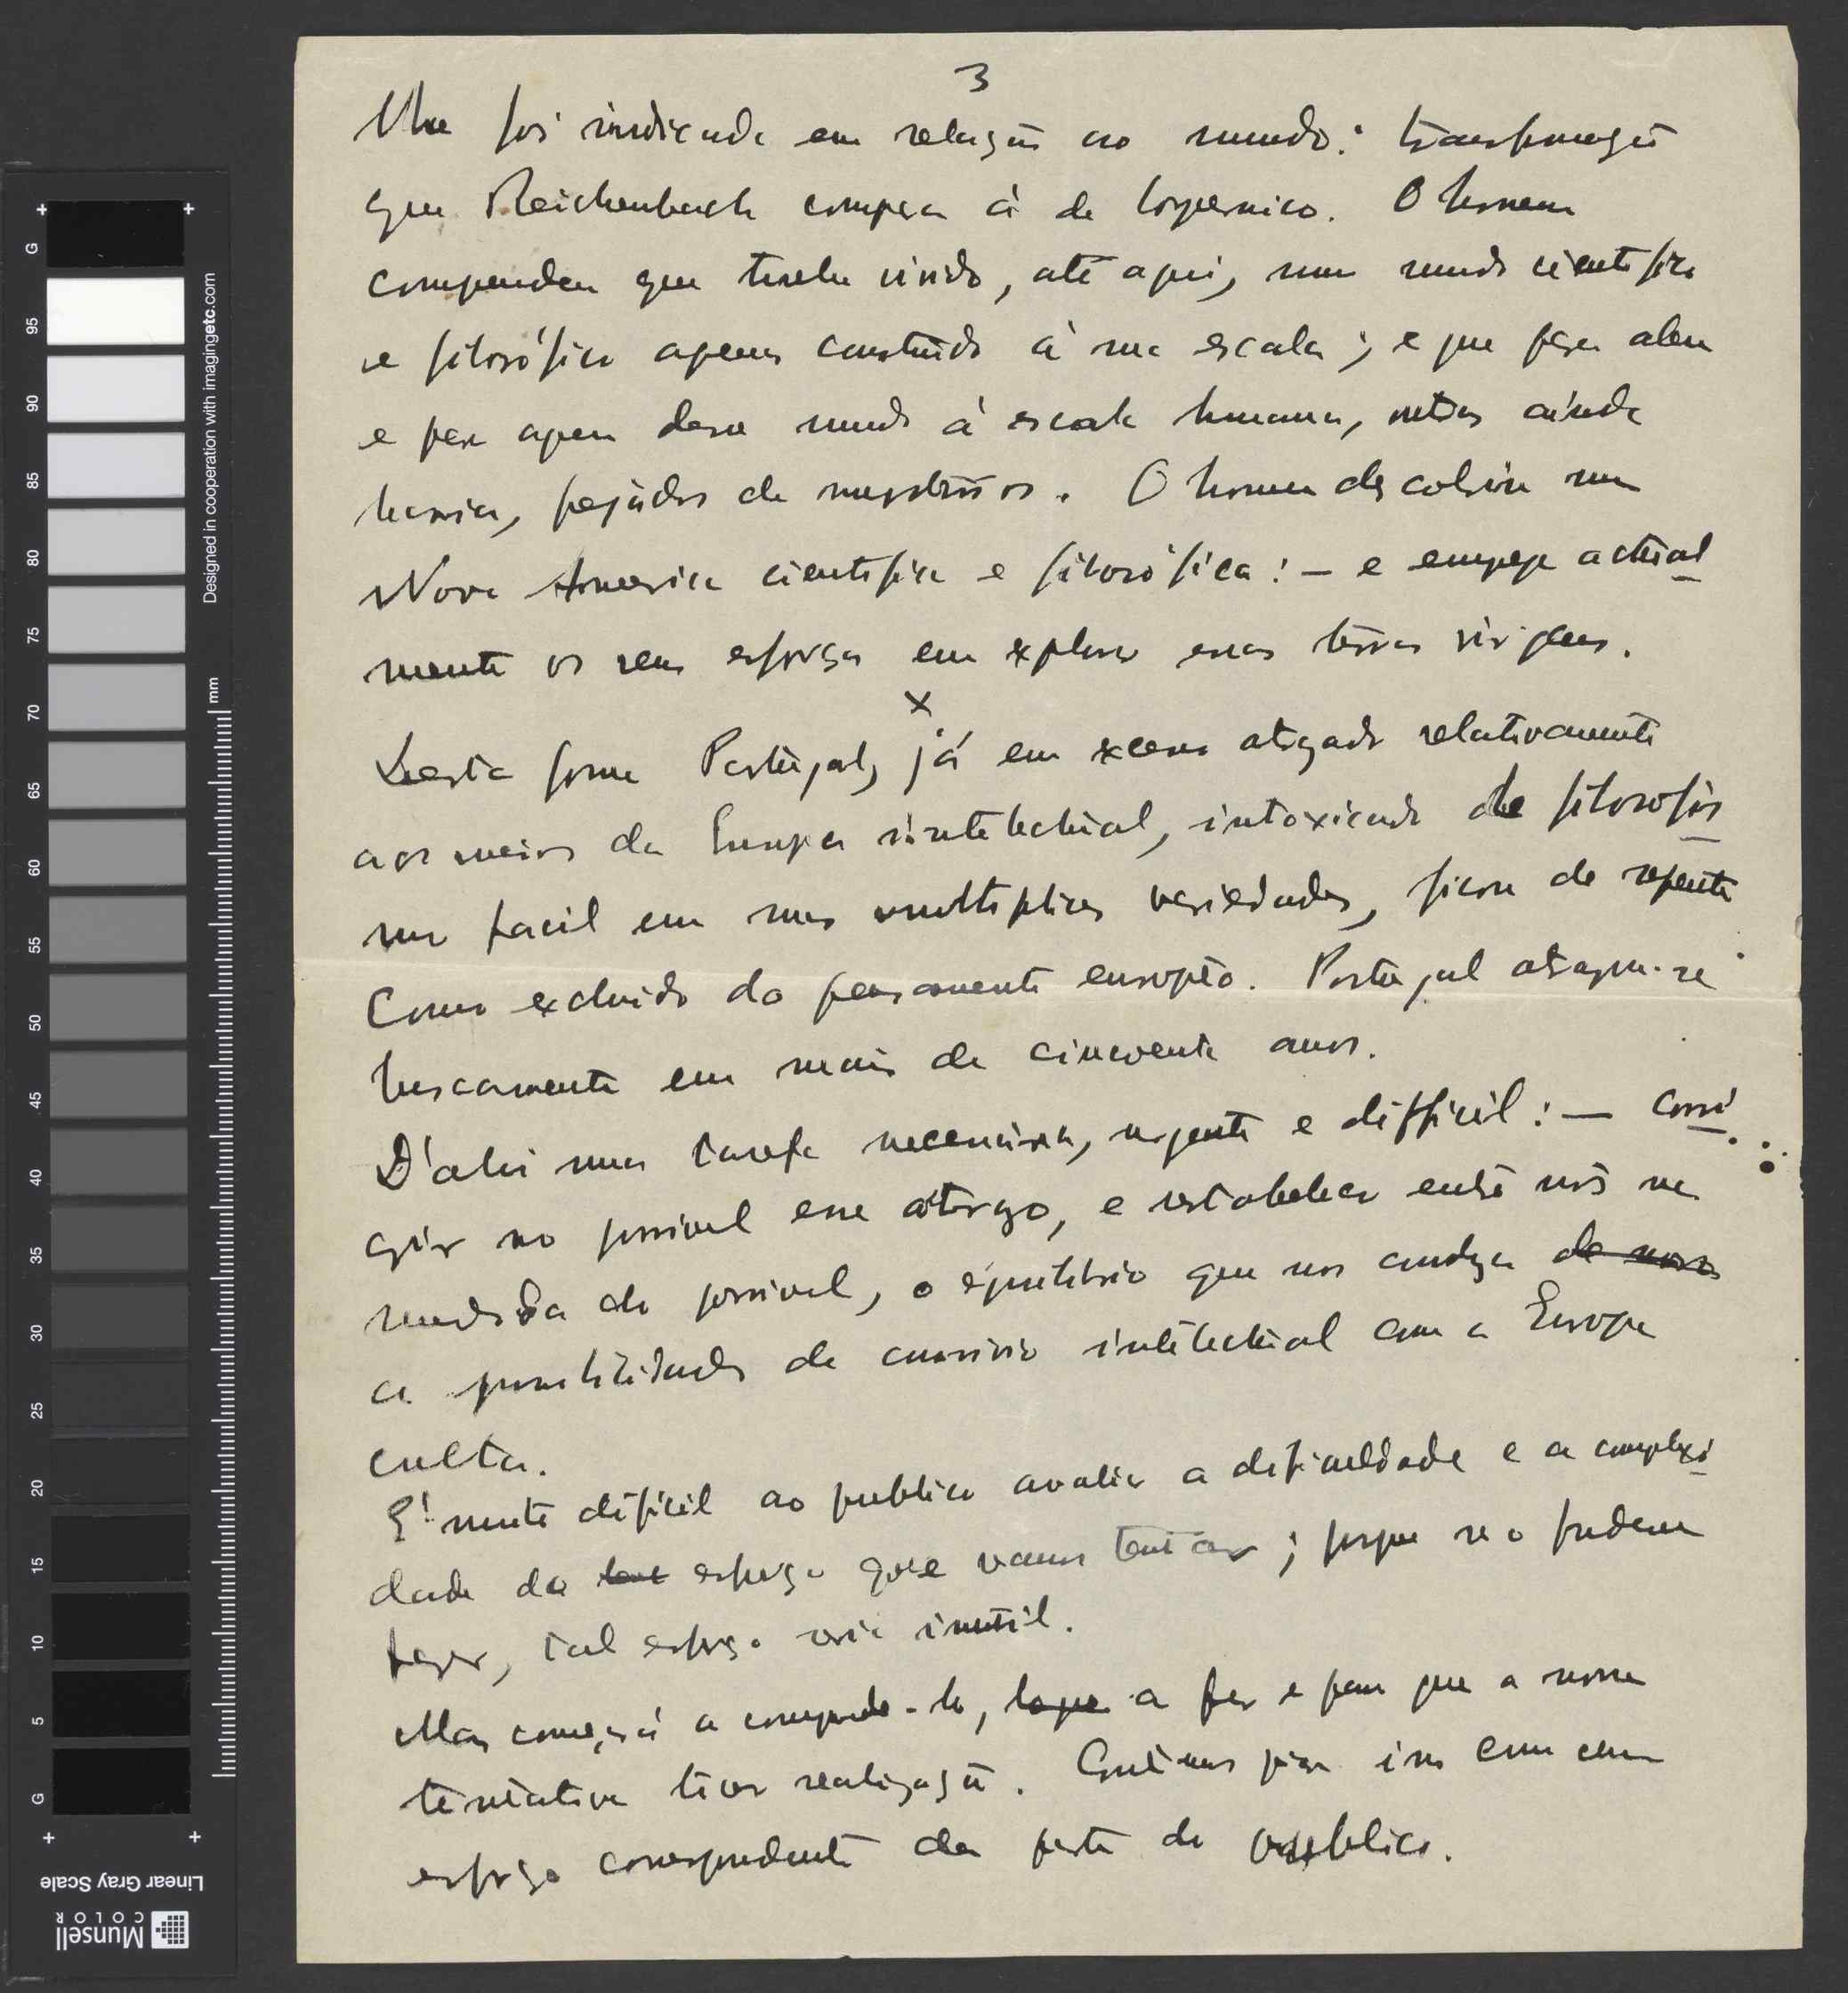 3
lhe foi indicada em relação ao mundo: transformação
que Reichenbach compara à de Copernico. O homem
compreendeu que tinha vivido, até aqui, num mundo cientifico
e filosófico apenas construido à sua escala; e que para alem
e para aquem desse mundo à escala humana, outros ainda
havia, pejados de misterios. O homem descobriu uma
Nova America cientifica e filosófica: – e emprega actual
mente os seus esforços em explorar essas terras virgens.
x
Desta forma Portugal, já em excesso atrazado relativamente
aos meios da Europa intelectual, intoxicado de filosofis
mo facil em suas multiplices variedades, ficou de repente
como excluido do pensamento europeo. Portugal atrazou-se
bruscamente em mais de cincoenta anos.
D'ahi uma tarefa necessaria, urgente e difficil: — corri
gir no possivel esse atrazo, e estabelecer entre nós na
medida do possivel, o equilibrio que nos conduza de nova
a possibilidade de convivio intelectual com a Europa
culta.
E' muito dificil ao publico avaliar a dificuldade e a complexi
dade do esforço que vamos tentar; porque se o pudesse
fazer, tal esforço seria inutil.
Mas começará a compreende-lo, a par e passo que a nossa
tentativa tiver realização. Contamos para isso com um
esforço correspondente da parte do publico.
Designed in cooperation with imagingetc.com
mm
G
95
90
85
80
75
70
65
60
55
50
45
40
35
30
25
20
15
10
5
G
Linear Gray Scale
Munsell
COLOR